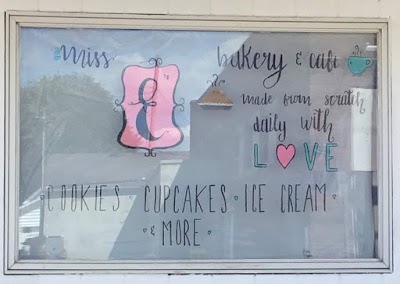 miss
&
bakery & café
made from scratch
daily with
LOVE
COOKIES · CUPCAKES · ICE CREAM ·
& MORE ·